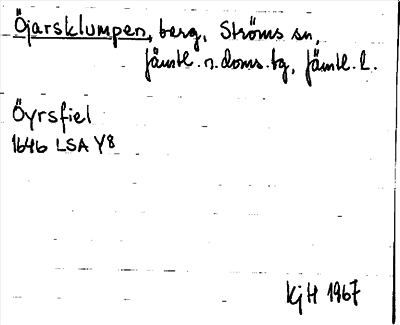 Öjarsklumpen, berg, Ströms sn,
Jämtl. n. doms. tg, Jämtl. l.
Öyrsfiel
1646 LSA Y8
KjH 1967